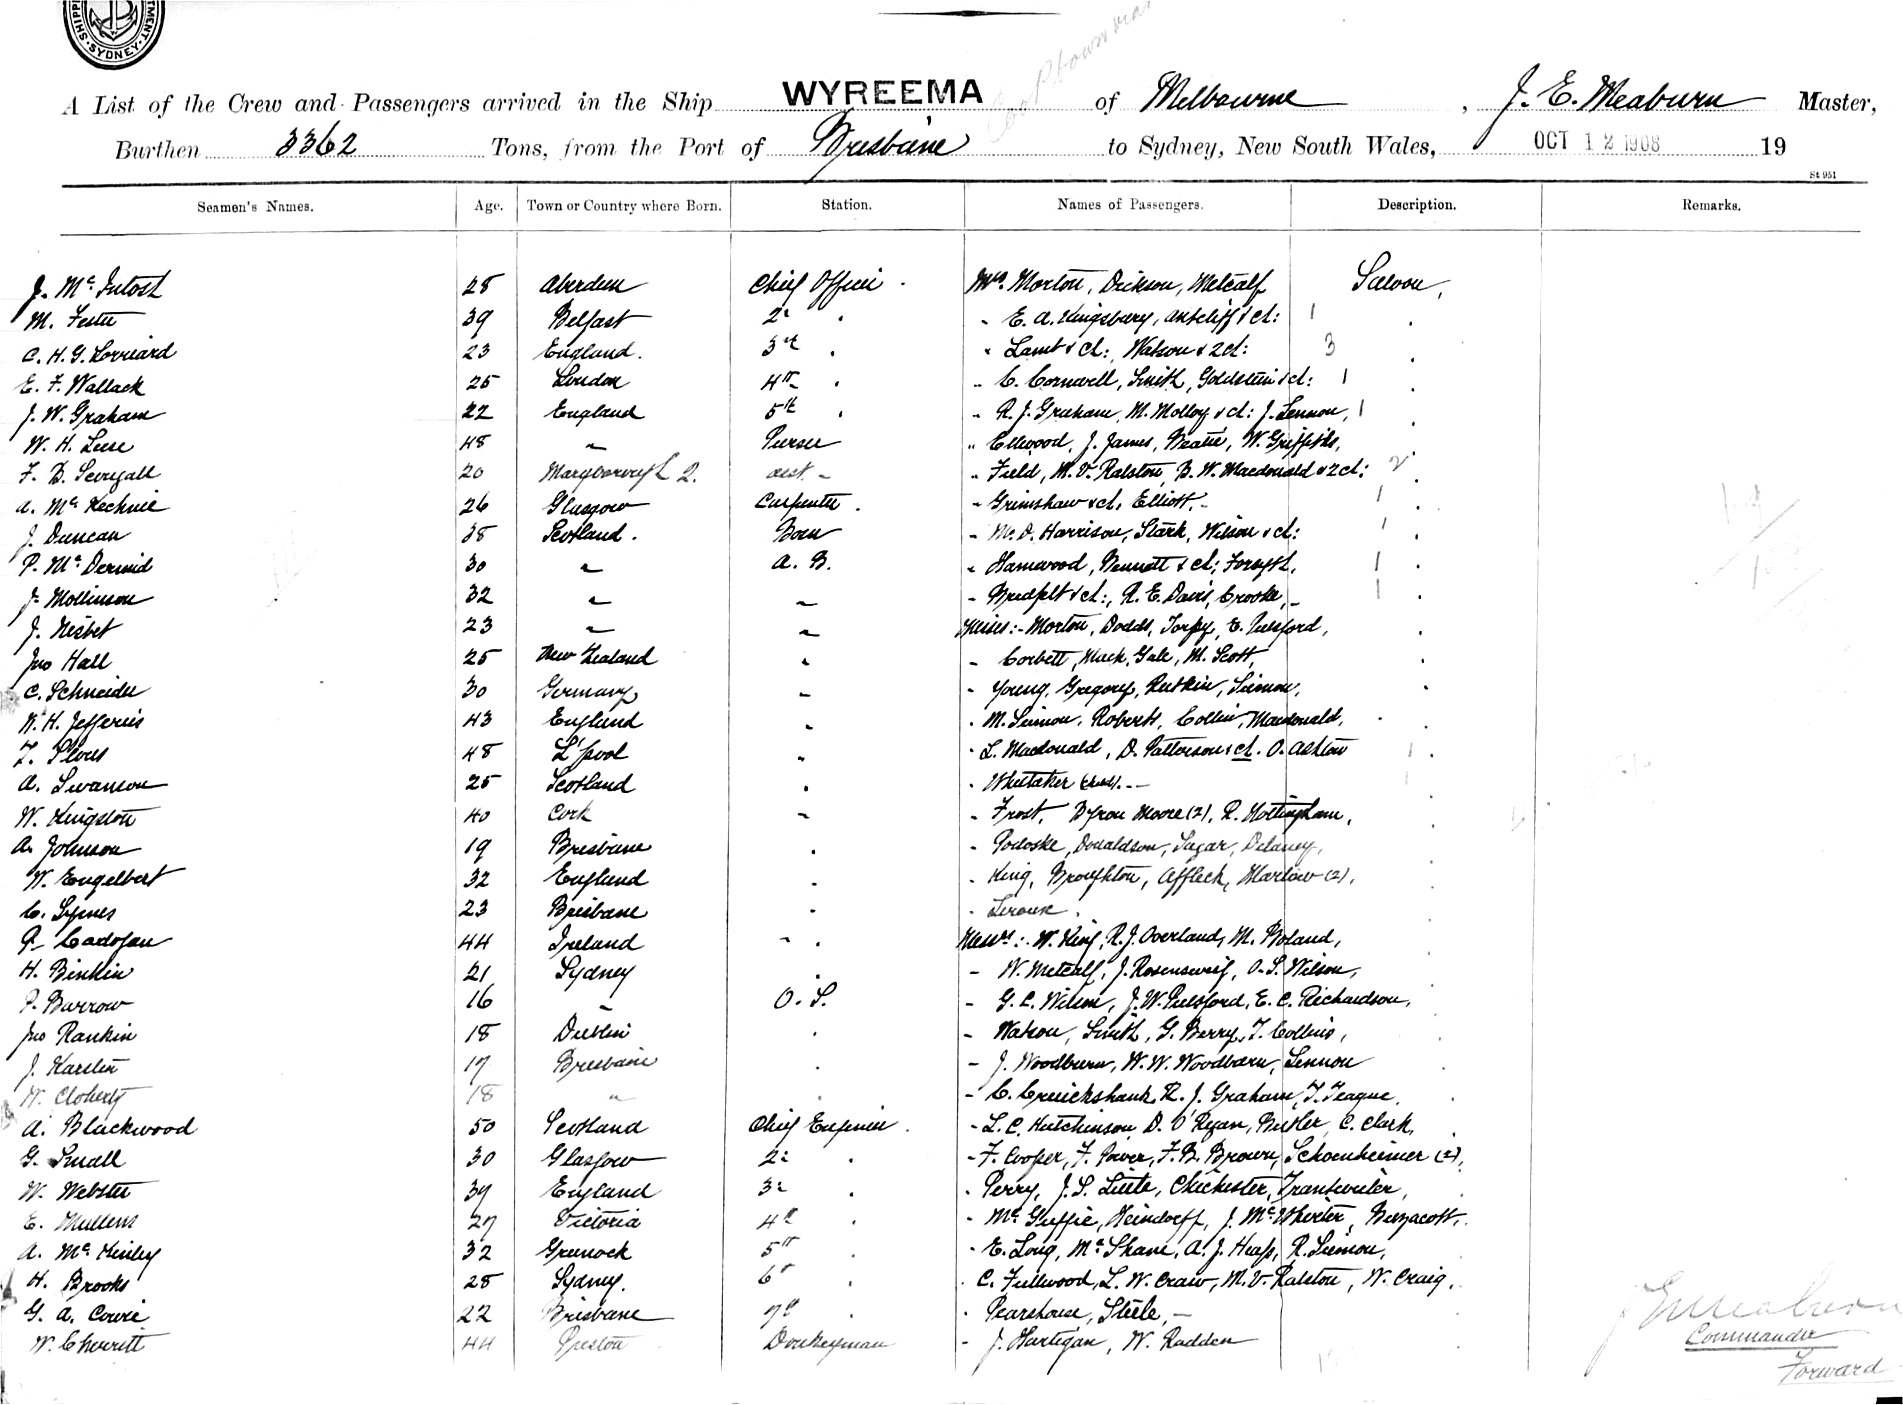 SYDNEY
A List of the Crew and Passengers arrived in the Ship WYREEMA of Melbourne, J. E. Meaburn Master,
Burthen 3362 Tons, from the Port of Brisbane to Sydney, New South Wales, OCT 12 1908 19
St 951
Seamen's Names. Age. Town or Country where Born. Station. Names of Passengers. Description. Remarks.
J. McIntosh 28 Aberdeen Chief Officer Mrs. Morton, Dickson, Metcalf Saloon,
M. Fester 39 Belfast 2d " E. A. Kingsbury, Antcliff & ch: 1
C. H. G. 23 England. 3rd " Lamb & ch:, Watson & 2 ch: 3
E. F. Wallack 25 London 4th " C. Cornwell, Smith, Goldstein & ch: 1
J. W. Graham 22 England 5th " R. J. Graham, M. Molloy & ch: J. Lennon, 1
W. H. 48 " Purser " Ellwood, J. James, Beatie, W. Griffiths,
F. B. 20 Maryborough Q. asst " " Field, M. V. Ralston, B. W. Macdonald & 2 ch: 2
A. McKechnie 26 Glasgow Carpenter. " Grimshaw & ch, Elliott, 1
J. Duncan 38 Scotland. Bosn " McD. Harrison, Stark, Wilson & ch: 1
P. McDermid 30 " A. B. " Hamwood, Bennett & ch; Forsyth, 1
J. Mollinson 32 " " " & ch:, R. E. Davis, Crooke, 1
J. Nisbet 23 " " Misses:- Morton, Dodds, Torpy, E. Pulsford,
Jno Hall 25 New Zealand " " Corbett, Mack, Gale, M. Scott,
C. Schneider 30 Germany " " Young, Gregory, Rutkin, Simon,
W. H. Jefferies 43 England " " M. Simon, Roberts, Collin, Macdonald,
48 L'pool " " L. Macdonald, D. Patterson & ch. O. Ashton 1
A. Swanson 25 Scotland " " Whittaker
W. Kingston 40 Cork " " Frost, Byron Moore (2), R. Nottingham,
A. Johnson 19 Brisbane " " Podoske, Donaldson, Sagar, Delaney,
W. Engelbert 32 England " " King, Broughton, Affleck, Marlow (2),
C. Symes 23 Brisbane " "
P. Cadogan 44 Ireland " Messrs:- W. King, R. J. Overland, M. Boland,
H. Binkin 21 Sydney " " W. Metcalf, J. Rosensweif, O. S. Wilson,
P. Barrow 16 " O. S. " G. C. Wilson, J. W. Pulsford, E. C. Richardson,
Jno Rankin 18 Dublin " " Watson, Smith, G. Berry, T. Collins,
J. Karsten 17 Brisbane " " J. Woodburn, W. W. Woodbarn, Lennon
W. Cloherty 18 " " " C. Cruickshank, R. J. Graham, T. Teague,
A. Blackwood 50 Scotland Chief Engineer. " L. C. Hutchinson, D. O'Ryan, Butler, C. Clark,
G. Small 30 Glasgow 2d " F. Cooper, F. Power, F. B. Brown, Schoenheimer (2),
W. Webster 39 England 3d " Perry, J. S. Little, Chichester, Trantweiler,
E. Mullens 27 Victoria 4th " McGuffie, Heindorff, J. McWhirter, Buzacott,
A. McKinley 32 Greenock 5th " E. Long, McShane, A. J. Heap, R. Simon,
H. Brooks 28 Sydney. 6th " C. Fullwood, L. W. Craw, M. V. Ralston, W. Craig,
G. A. Cowie 22 Brisbane 7th " Pearshouse, Steele,
W. Cheritt 44 Preston Donkeyman " J. Hartigan, W. Radden
J E Meaburn
Commander
Forward